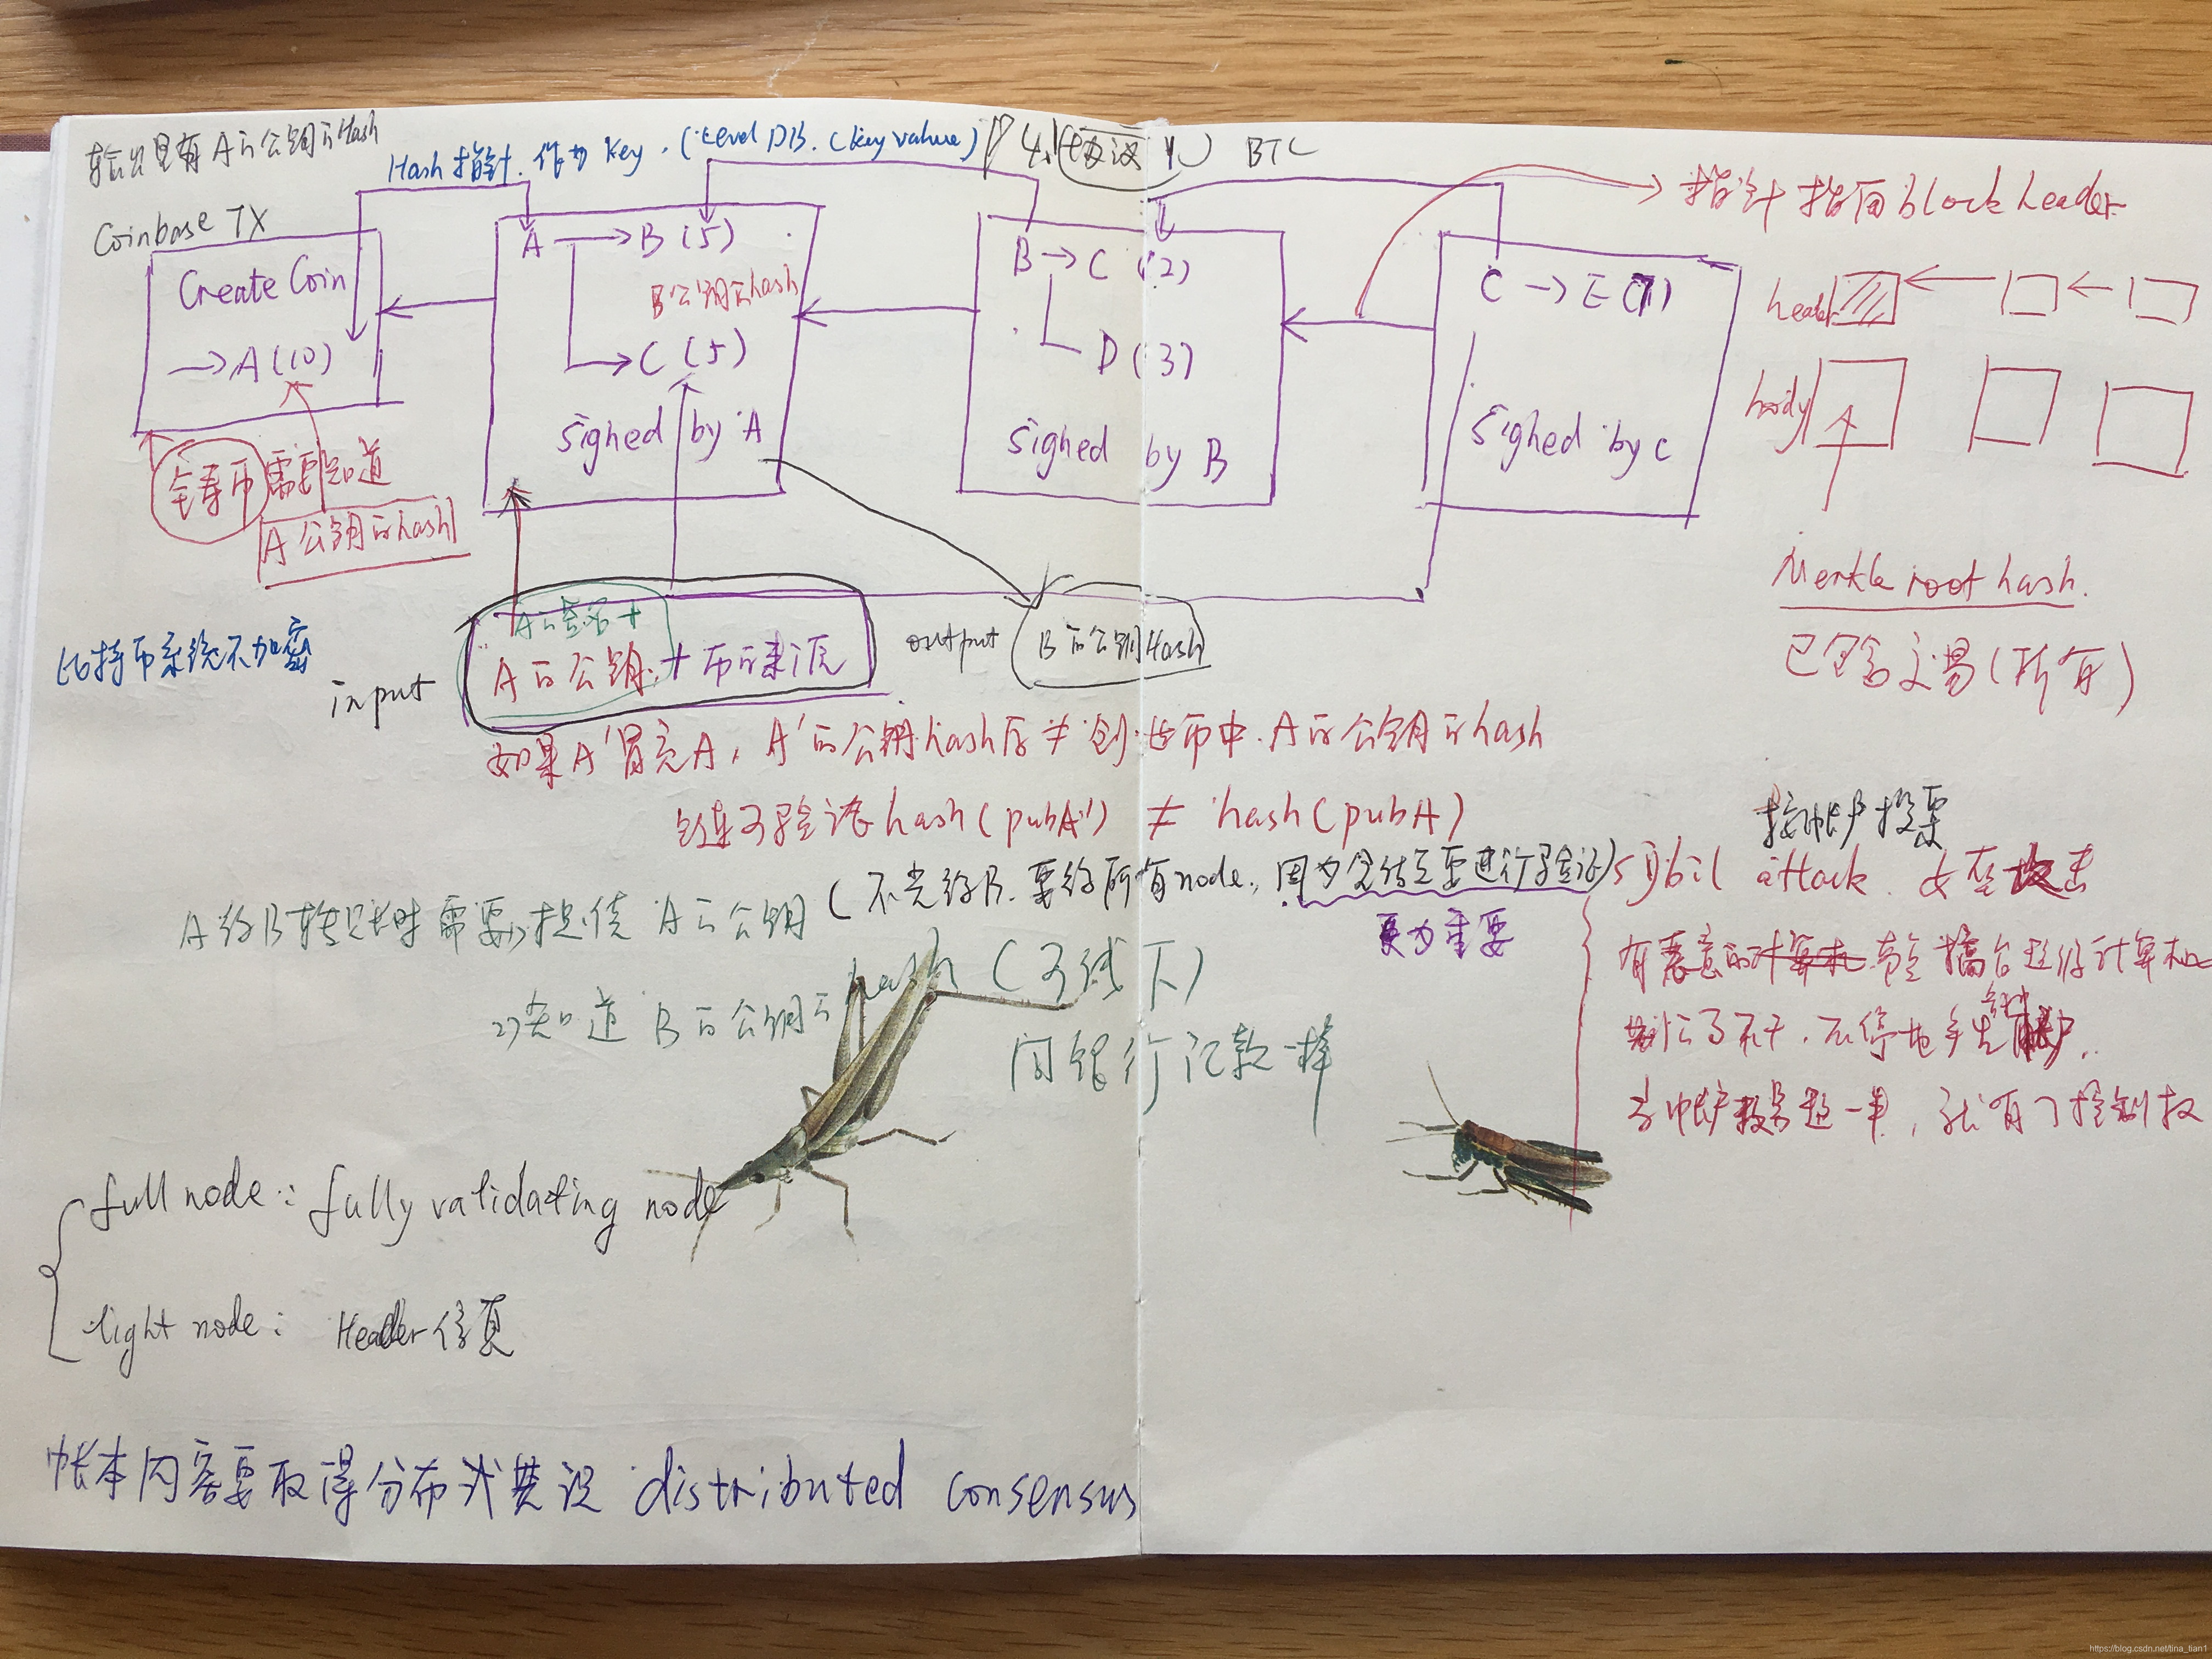 输出里有A的公钥的Hash
Hash指针.作为key.(Level DB.(key value)
P4.(协议) BTC
指针指向block header
Coinbase TX
Create Coin
→A(10)
A→B(5)
B公钥的hash
→C(5)
signed by A
B→C(2)
D(3)
signed by B
C→E(7)
signed by C
header
body
铸币需要知道
A公钥的hash
Merkle root hash.
已包含交易(所有)
比特币系统不加密
input
A的签名+
A的公钥.+币的来源
output
B的公钥Hash
如果A'冒充A,A'的公钥hash后≠创世币中.A的公钥的hash
hash(pubA') ≠ hash(pubA)
按帐户投票
A给B转账时需要 提供A的公钥(不光给B.要给所有node.,因为 要进行验证)
更为重要
sybil attack. 女巫攻击
2)知道B的公钥的hash
同银行 一样
有恶意的 搞台超级计算机
别的不干,不停地产生帐户,
当帐户数超一半,就有了控制权
full node: fully validating node
light node: Header信息
帐本内容要取得分布式共识 distributed consensus
https://blog.csdn.net/tina_tian1